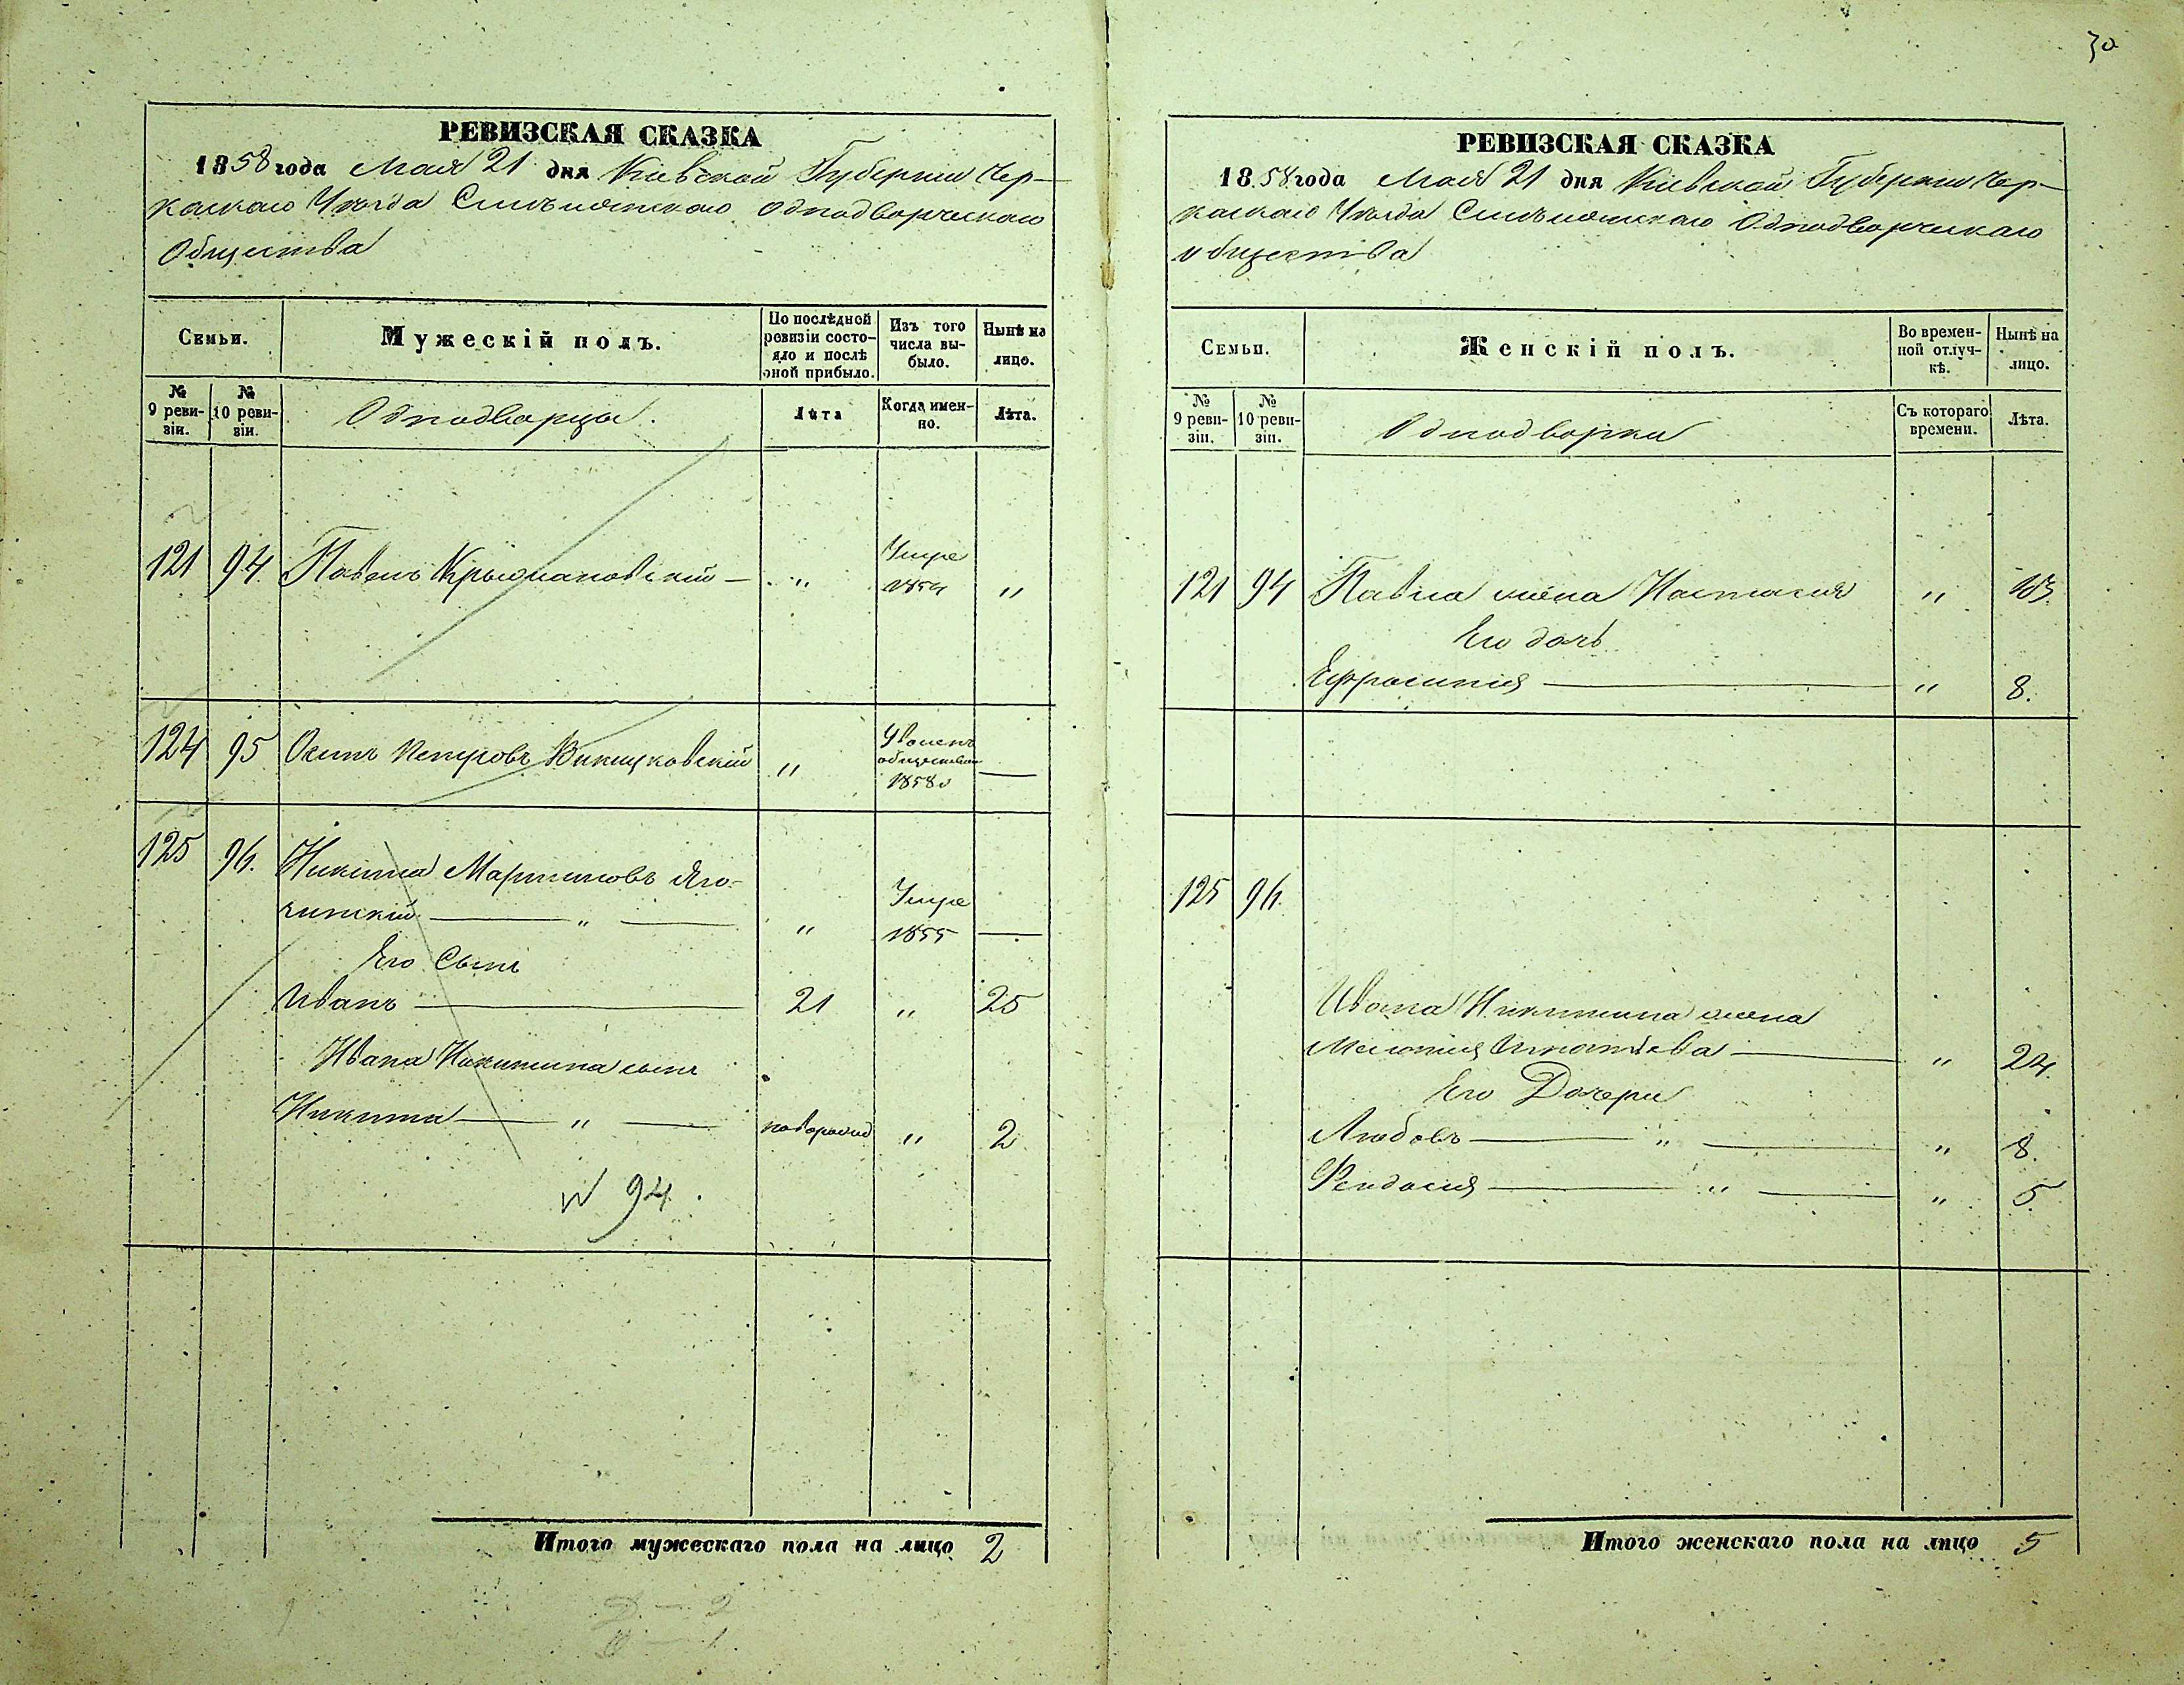 30
РЕВИЗСКАЯ СКАЗКА
1858 года Мая 21 дня Кіевской Губерніи Чер-
каскаго Уѣзда Смѣлянскаго Однодворческаго
Общества
Семьи.
Мужескій полъ.
По послѣдной ревизіи состо-яло и послѣ оной прибыло.
Изъ того числа вы-было.
Нынѣ на лицо.
№ 9 реви-зіи.
№ 10 реви-зіи.
Однодворцы.
Лѣта
Когда имен-но.
Лѣта.
121 94. Павелъ — " Умре "
124 95 Осипъ Петровъ " Уволенъ 1858 —
125 96. Никита Мартиновъ Яго-
чинскій — " — " Умре 1855 —
Его Сынъ
Иванъ — 21 " 25
Ивана Никитина сынъ
Никита — " — новорожд " 2
№ 94.
Итого мужескаго пола на лицо 2
Д — 2
— 1.
РЕВИЗСКАЯ СКАЗКА
1858 года Мая 21 дня Кіевской Губерніи Чер-
каскаго Уѣзда Смѣлянскаго Однодворческаго
общества
Семьи.
Женскій полъ.
Во времен-ной отлуч-кѣ.
Нынѣ на лицо.
№ 9 реви-зіи.
№ 10 реви-зіи.
Однодворки
Съ котораго времени.
Лѣта.
121 94 Павла жена Настасия "
Его дочь
Ефросиния — " 8.
125 96.
Ивана Никитина жена
Игнатьева — " 24.
Его Дочери
Любовь — " — " 8.
Феодосия — " — " 5.
Итого женскаго пола на лицо 5